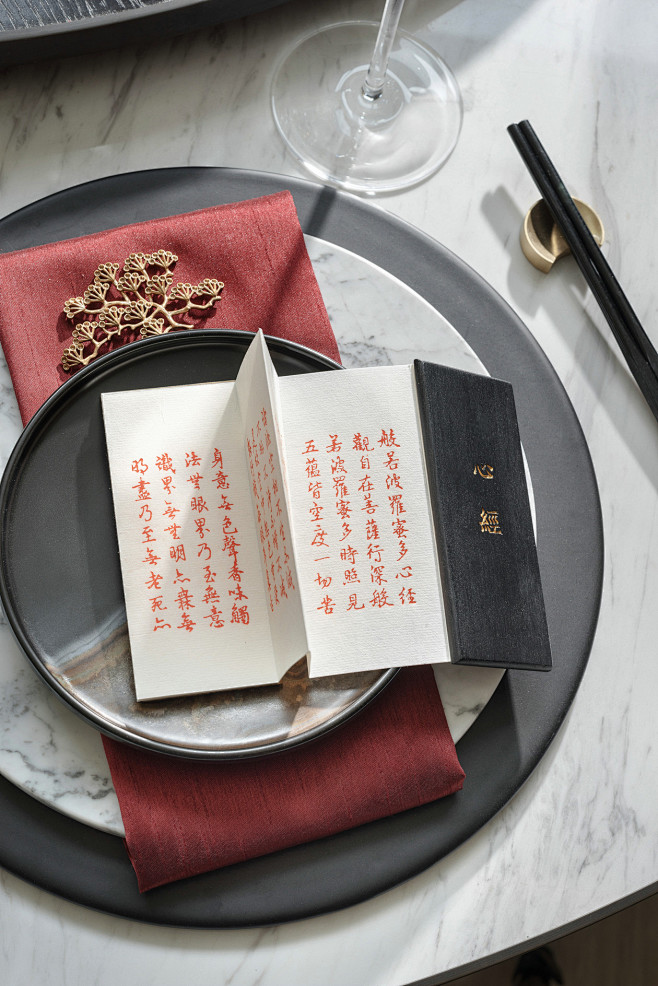 心經
般若波羅蜜多心經
觀自在菩薩行深般
若波羅蜜多時照見
五蘊皆空度一切苦
身意無色聲香味觸
法無眼界乃至無意
識界無無明亦無無
明盡乃至無老死亦